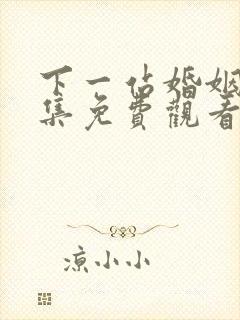 下一站婚姻
集免費觀看
涼小小